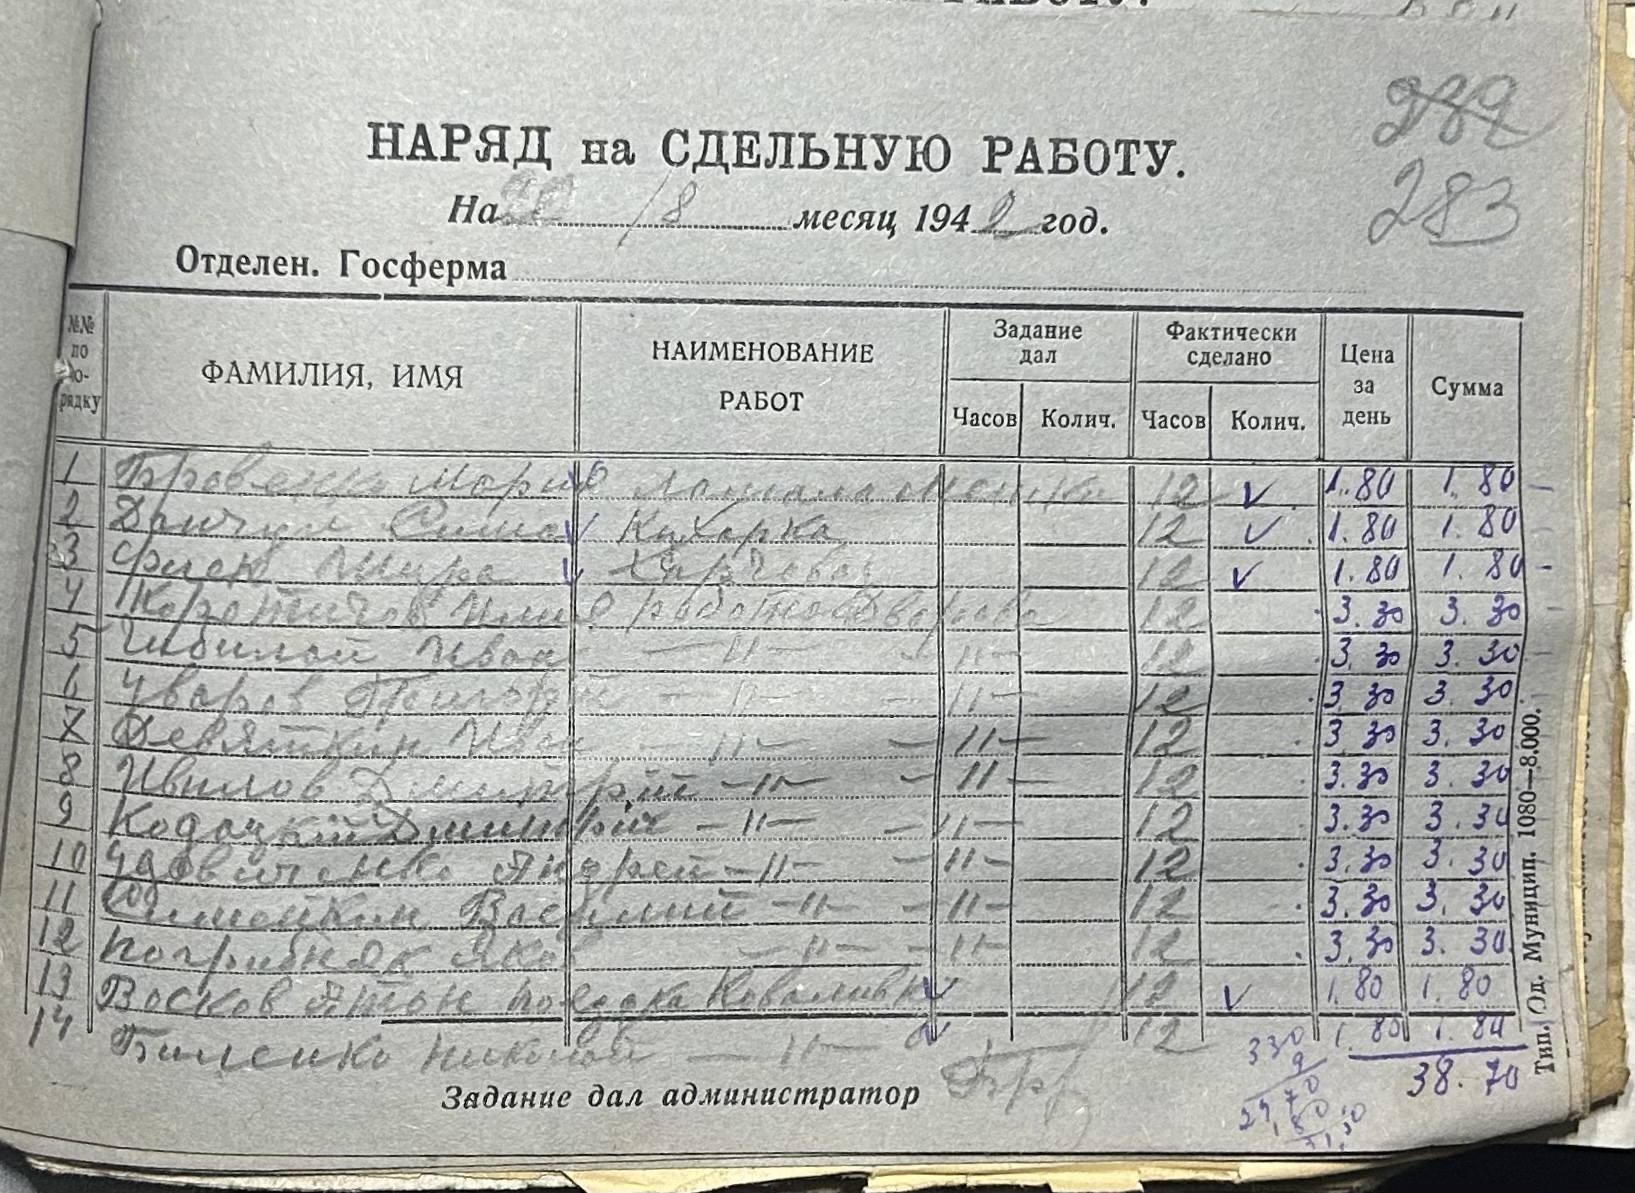 282
283
НАРЯД на СДЕЛЬНУЮ РАБОТУ.
На 20/8 месяц 1942 год.
Отделен. Госферма
№.№ по по-рядку ФАМИЛИЯ, ИМЯ НАИМЕНОВАНИЕ РАБОТ Задание дал Часов Колич. Фактически сделано Часов Колич. Цена за день Сумма
1 Мария 12 v 1.80 1.80
2 v Кухарка 12 v 1.80 1.80
3 v 12 v 1.80 1.80
4 работа 12 3.30 3.30
5 Иван —"— —"— 12 3.30 3.30
6 Уваров Григорий —"— —"— 12 3.30 3.30
7 Девяткин Иван —"— —"— 12 3.30 3.30
8 Ивилов Дмитрий —"— —"— 12 3.30 3.30
9 Кодацкий Дмитрий —"— —"— 12 3.30 3.30
10 Удовиченко Андрей —"— —"— 12 3.30 3.30
11 Василий —"— —"— 12 3.30 3.30
12 Погрибняк Яков —"— —"— 12 3.30 3.30
13 Восков Антон поездка v 12 v 1.80 1.80
14 Биленко Николай —"— v 12 1.80 1.80
38.70
Задание дал администратор
330
9
29 70
Тип. Од. Муницип. 1080—8.000.